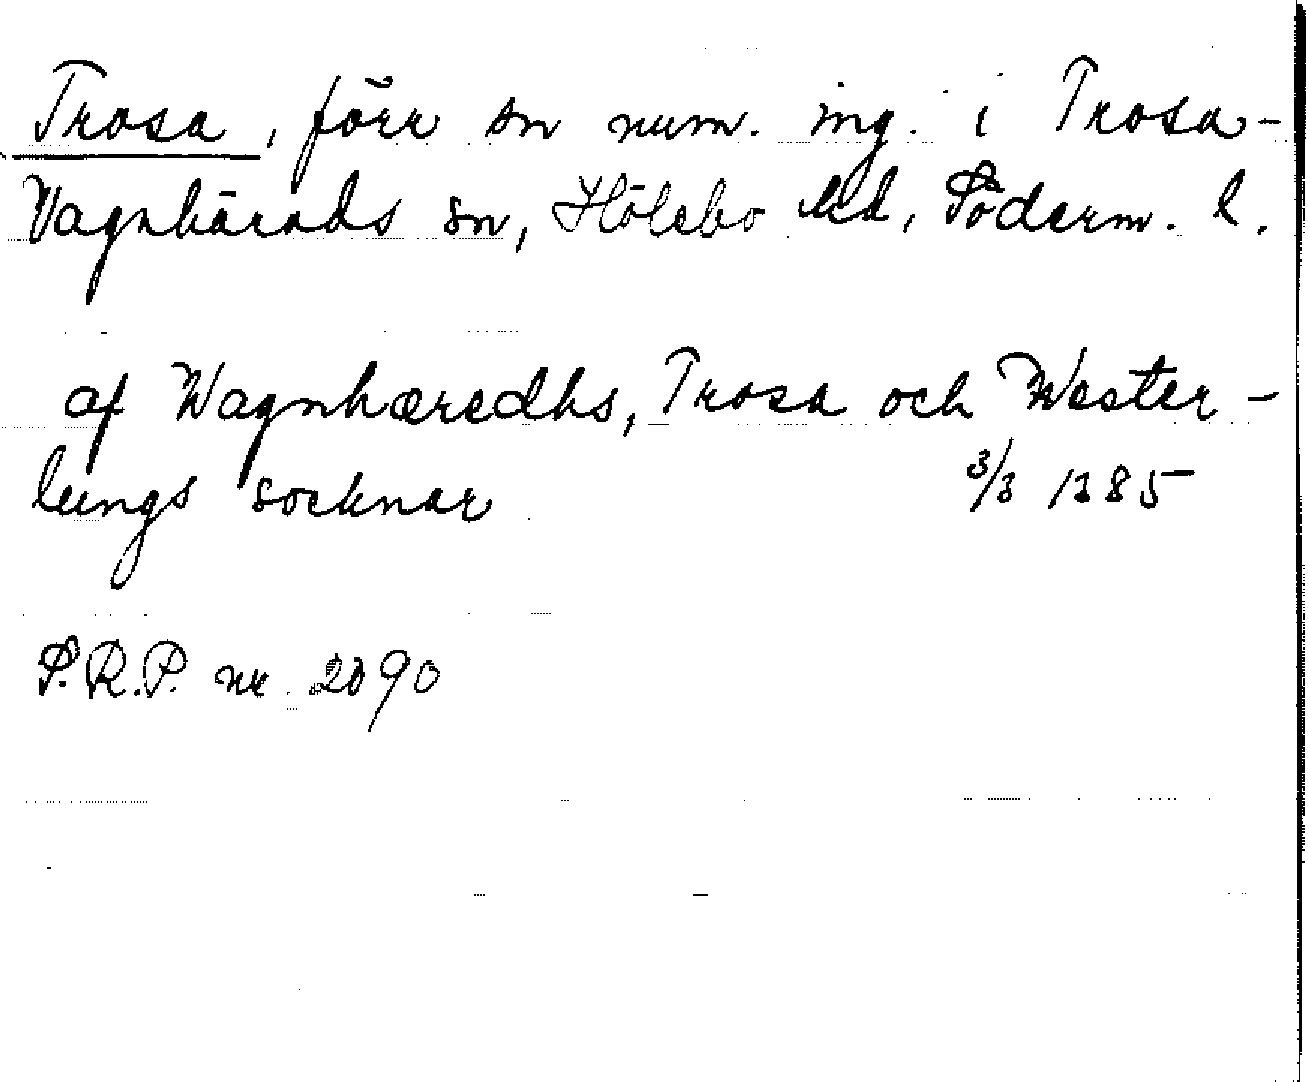 Trosa, förr sn num. ing. i Trosa-
Vagnhärads sn, Hölebo hd, Söderm. l.
af Wagnhæredhs, Trosa och Wester-
lungs socknar 3/3 1385
S.R.P. nr. 2090